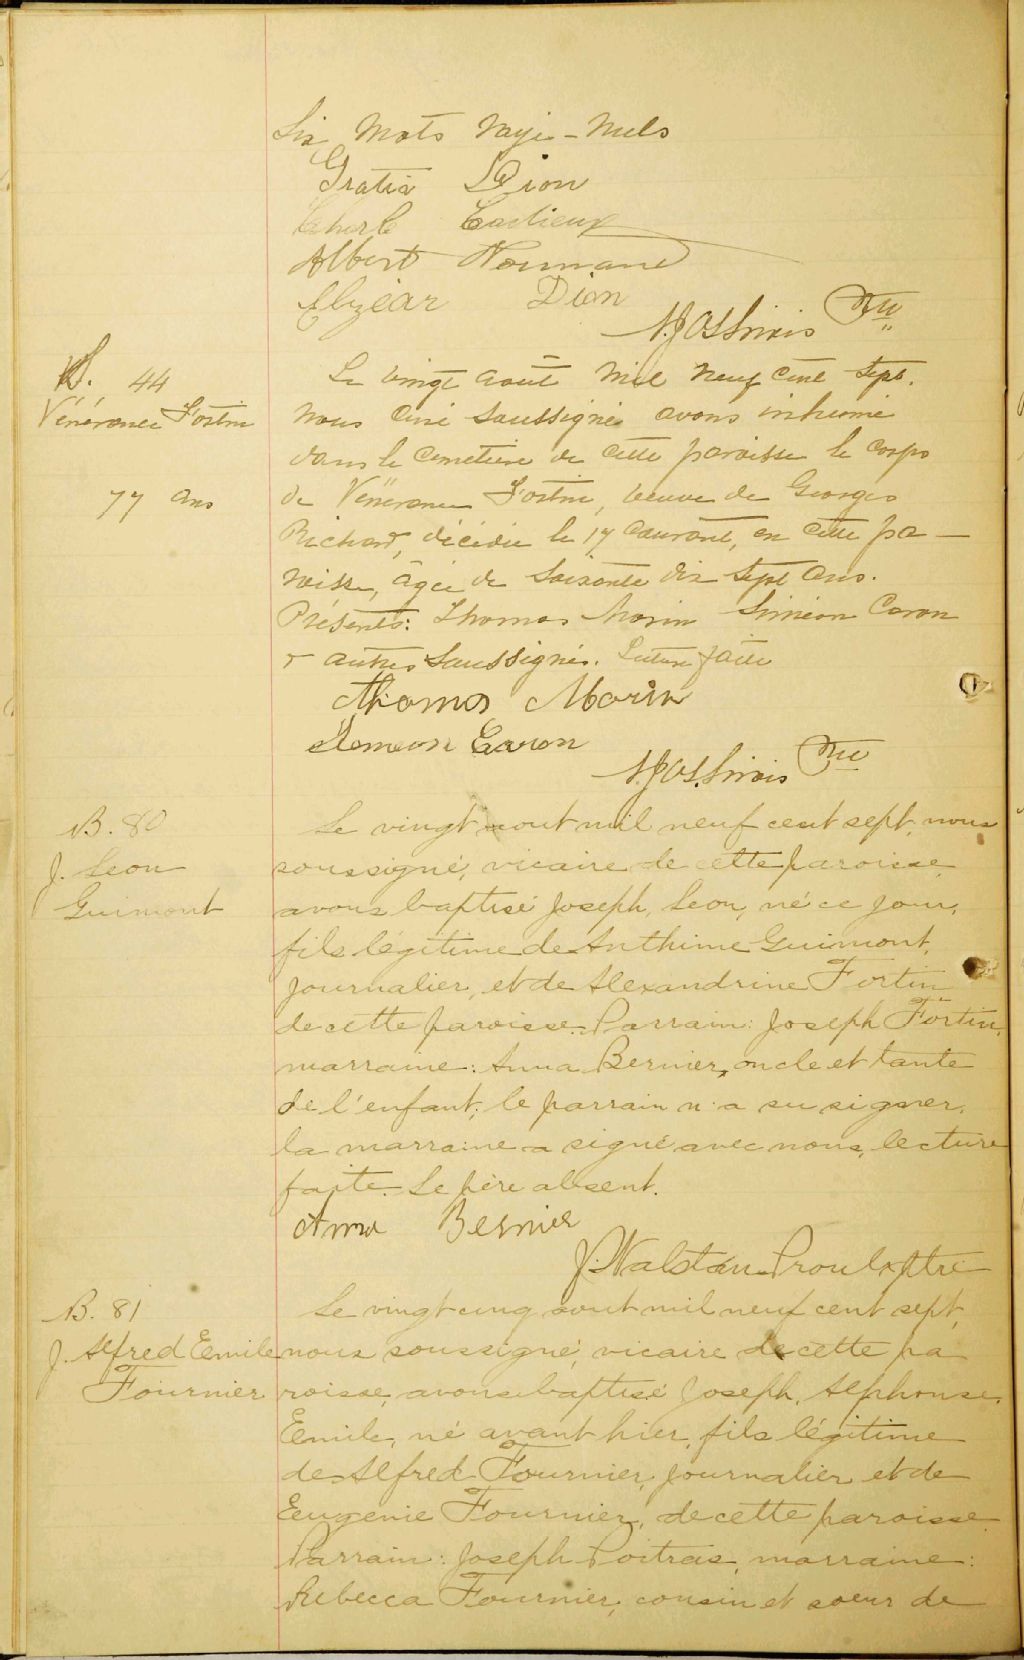 Six mots rayés nuls
Gratia Dion
Albert Normand
Elzéar Dion
N. Jos. Sirois Ptre
S. 44
Vénérance Fortin
77 ans
Le vingt août mil neuf cent sept.
nous curé soussigné avons inhumé
dans le cimetière de cette paroisse le corps
de Vénérance Fortin, veuve de Georges
Richard, décédée le 17 courant, en cette pa-
roisse, âgée de soixante dix sept ans.
Présents: Thomas Morin Siméon Caron
& autres soussignés. Lecture faite
Thomas Morin
Simeon Caron
N. Jos. Sirois Ptre
B. 80
J. Leon
Guimont
Le vingt aout mil neuf cent sept, nous
soussigné, vicaire de cette paroisse,
avons baptisé Joseph, Leon, né ce jour,
fils légitime de Anthime Guimont,
journalier, et de Alexandrine Fortin
de cette paroisse. Parrain: Joseph Fortin,
marraine: Anna Bernier, oncle et tante
de l'enfant; le parrain n'a su signer,
la marraine a signé avec nous, lecture
faite. Le père absent.
Anna Bernier
J. Walstan Proulx ptre
B. 81
J. Alfred Emile
Fournier
Le vingt cinq aout mil neuf cent sept,
nous soussigné, vicaire de cette pa
roisse, avons baptisé Joseph, Alphonse,
Emile, né avant hier, fils légitime
de Alfred Fournier, journalier et de
Eugenie Fournier, de cette paroisse.
Parrain: Joseph Poitras, marraine:
Rebecca Fournier, cousin et soeur de